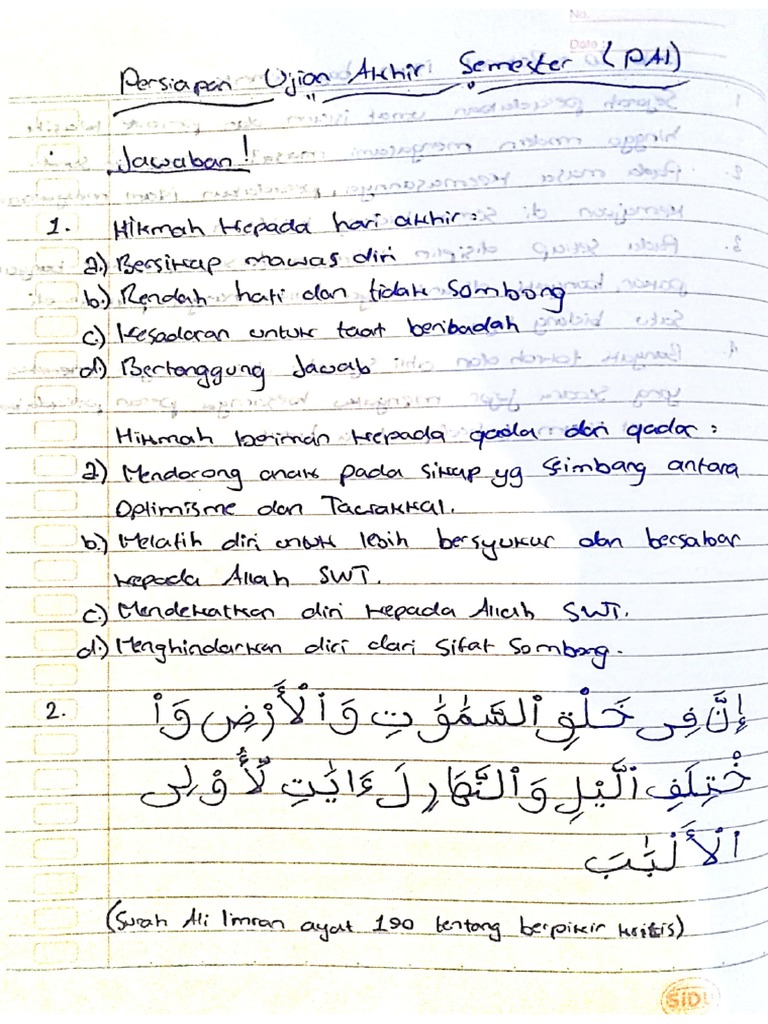 No.
Date
Persiapan Ujian Akhir Semester (PAI)
Jawaban!
1. Hikmah kepada hari akhir:
a.) Bersikap mawas diri
b.) Rendah hati dan tidak sombong
c.) Kesadaran untuk taat beribadah
d.) Bertanggung Jawab
Hikmah beriman kepada qada dan qadar:
a) Mendorong anak pada sikap yg seimbang antara
Optimisme dan Tawakkal.
b.) Melatih diri untuk lebih bersyukur dan bersabar
kepada Allah SWT.
c.) Mendekatkan diri kepada Allah SWT.
d.) Menghindarkan diri dari sifat sombong.
2. إِنَّ فِى خَلْقِ ٱلسَّمَٰوَٰتِ وَٱلْأَرْضِ وَٱ
خْتِلَٰفِ ٱلَّيْلِ وَٱلنَّهَارِ لَءَايَٰتٍ لِّأُو۟لِى
ٱلْأَلْبَٰبِ
(Surah Ali Imran ayat 190 tentang berpikir kritis)
SiDU